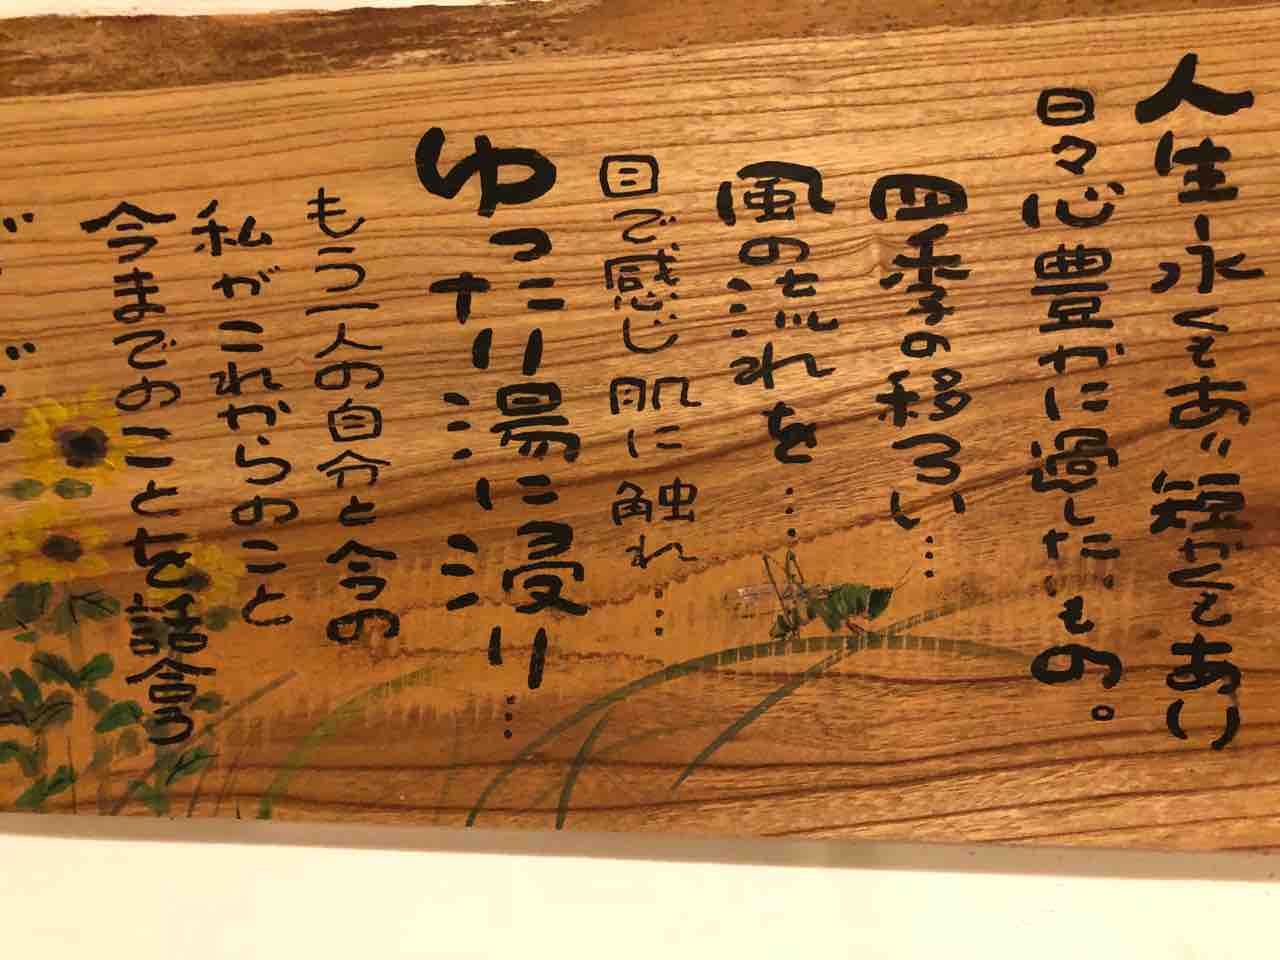 人生永くもあり短かくもあり
日々心豊かに過したいもの。
四季の移ろい…
風の流れを…
目で感じ肌に触れ…
ゆったり湯に浸り…
もう一人の自分と今の
私がこれからのこと
今までのことを話合う